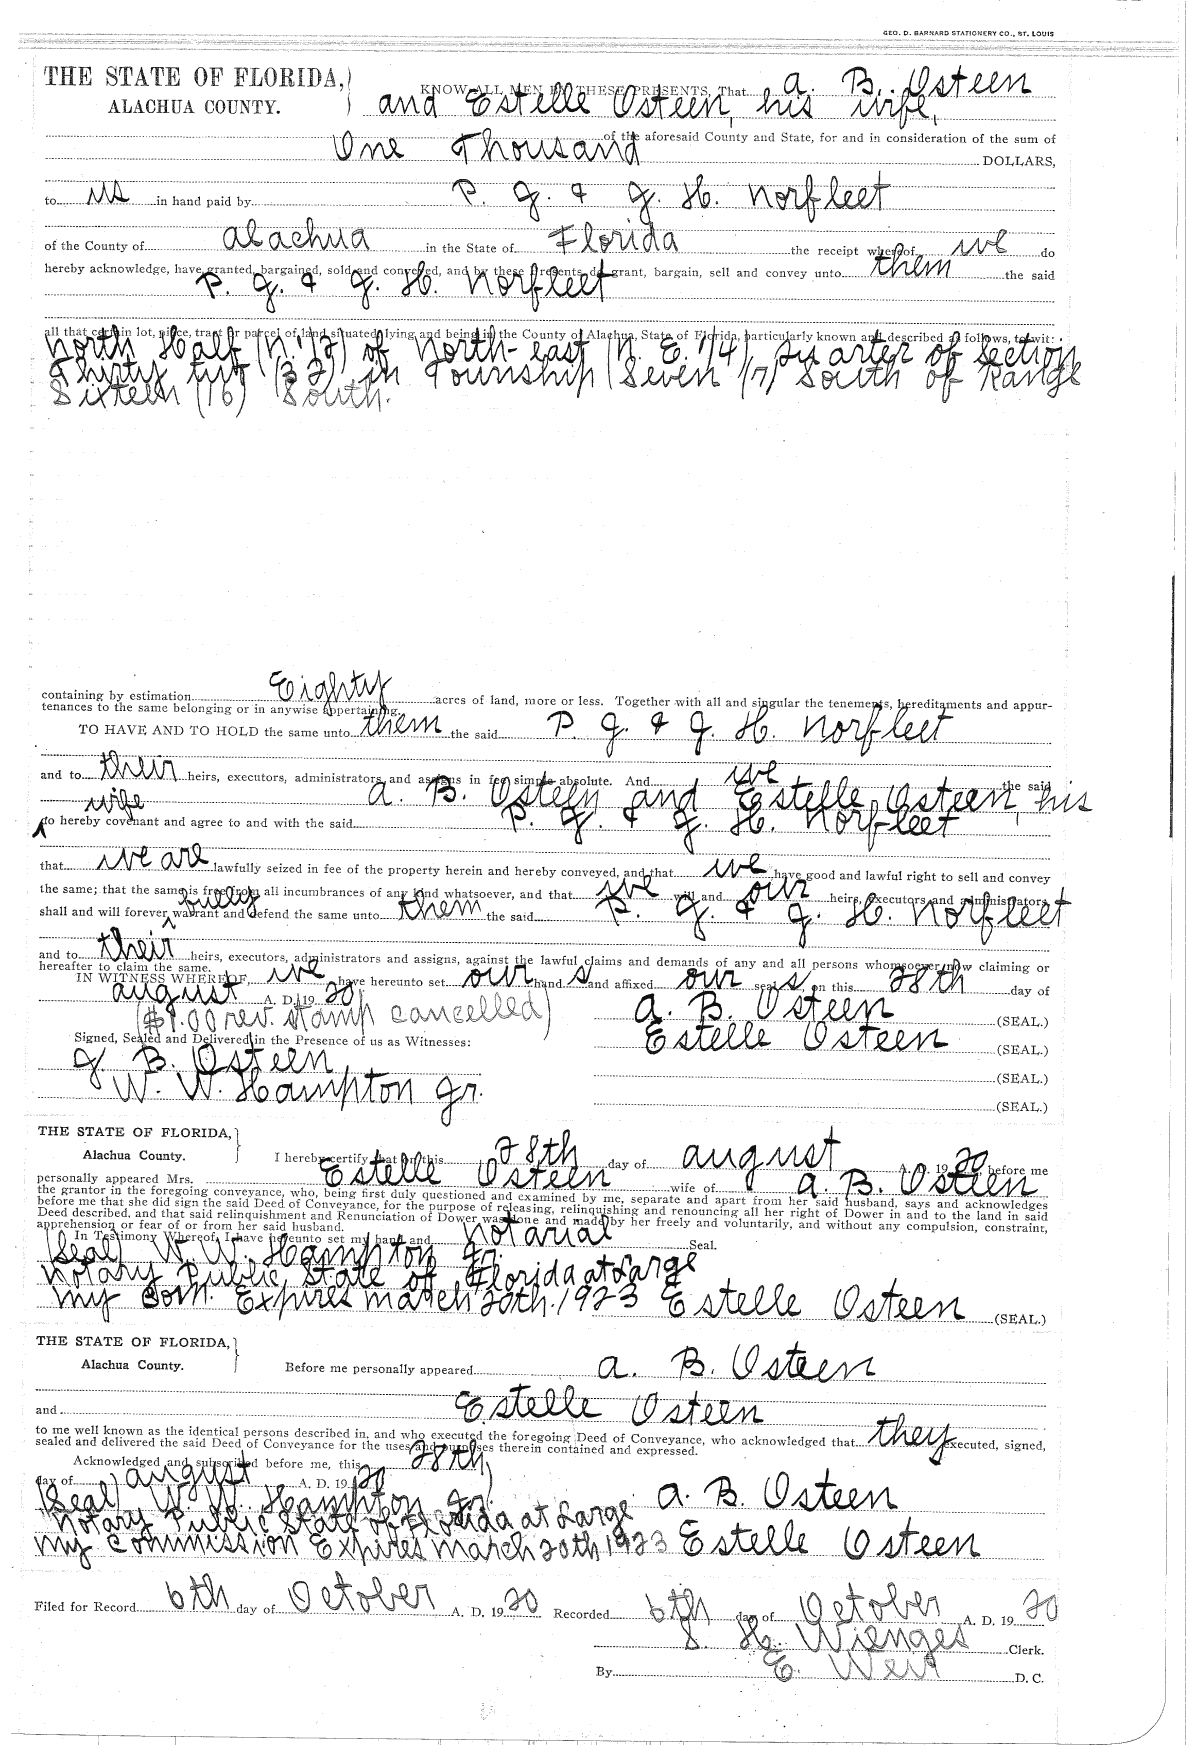 GEO. D. BARNARD STATIONERY CO., ST. LOUIS
THE STATE OF FLORIDA,
ALACHUA COUNTY.
KNOW ALL MEN BY THESE PRESENTS, That A. B. Osteen
and Estelle Osteen, his wife,
of the aforesaid County and State, for and in consideration of the sum of
One Thousand DOLLARS,
to us in hand paid by P. G. & G. H. Norfleet
of the County of Alachua in the State of Florida the receipt whereof we do
hereby acknowledge, have granted, bargained, sold and conveyed, and by these presents do grant, bargain, sell and convey unto them the said
P. G. & G. H. Norfleet
all that certain lot, piece, tract or parcel of land situated, lying and being in the County of Alachua, State of Florida, particularly known and described as follows, to wit:
North Half (N. 1/2) of North-east (N. E. 1/4) Quarter of Section
Thirty (32) in Township (Seven (7) South of Range
Sixteen (16) South.
containing by estimation Eighty acres of land, more or less. Together with all and singular the tenements, hereditaments and appur-
tenances to the same belonging or in anywise appertaining.
TO HAVE AND TO HOLD the same unto them the said P. G. & G. H. Norfleet
and to their heirs, executors, administrators and assigns in fee simple absolute. And we the said
A. B. Osteen and Estelle Osteen, his
wife
do hereby covenant and agree to and with the said P. G. & G. H. Norfleet
that we are lawfully seized in fee of the property herein and hereby conveyed, and that we have good and lawful right to sell and convey
the same; that the same is free from all incumbrances of any kind whatsoever, and that we will and our heirs, executors and administrators
shall and will forever fully warrant and defend the same unto them the said P. G. & G. H. Norfleet
and to their heirs, executors, administrators and assigns, against the lawful claims and demands of any and all persons whomsoever now claiming or
hereafter to claim the same.
IN WITNESS WHEREOF, we have hereunto set our hand s and affixed our seal s on this 28th day of
August A. D. 19 20
($1.00 rev. stamp cancelled)
A. B. Osteen (SEAL.)
Signed, Sealed and Delivered in the Presence of us as Witnesses:
Estelle Osteen (SEAL.)
J. B. Osteen
(SEAL.)
W. W. Hampton Jr.
(SEAL.)
THE STATE OF FLORIDA,
Alachua County.
I hereby certify that on this 28th day of August A. D. 19 20 before me
personally appeared Mrs. Estelle Osteen wife of A. B. Osteen
the grantor in the foregoing conveyance, who, being first duly questioned and examined by me, separate and apart from her said husband, says and acknowledges
before me that she did sign the said Deed of Conveyance, for the purpose of releasing, relinquishing and renouncing all her right of Dower in and to the land in said
Deed described, and that said relinquishment and Renunciation of Dower was done and made by her freely and voluntarily, and without any compulsion, constraint,
apprehension or fear of or from her said husband.
In Testimony Whereof, I have hereunto set my hand and Notarial Seal.
(Seal) W. W. Hampton Jr.
Notary Public, State of Florida at Large
My Com. Expires March 20th. 1923 Estelle Osteen (SEAL.)
THE STATE OF FLORIDA,
Alachua County.
Before me personally appeared A. B. Osteen
and Estelle Osteen
to me well known as the identical persons described in, and who executed the foregoing Deed of Conveyance, who acknowledged that they executed, signed,
sealed and delivered the said Deed of Conveyance for the uses and purposes therein contained and expressed.
Acknowledged and subscribed before me, this 28th
day of August A. D. 19 20
(Seal) W. W. Hampton Jr. A. B. Osteen
Notary Public State of Florida at Large
My Commission Expires March 20th 1923 Estelle Osteen
Filed for Record 6th day of October A. D. 19 20 Recorded 6th day of October A. D. 19 20
S. H. Wienges Clerk.
By E. Weir D. C.